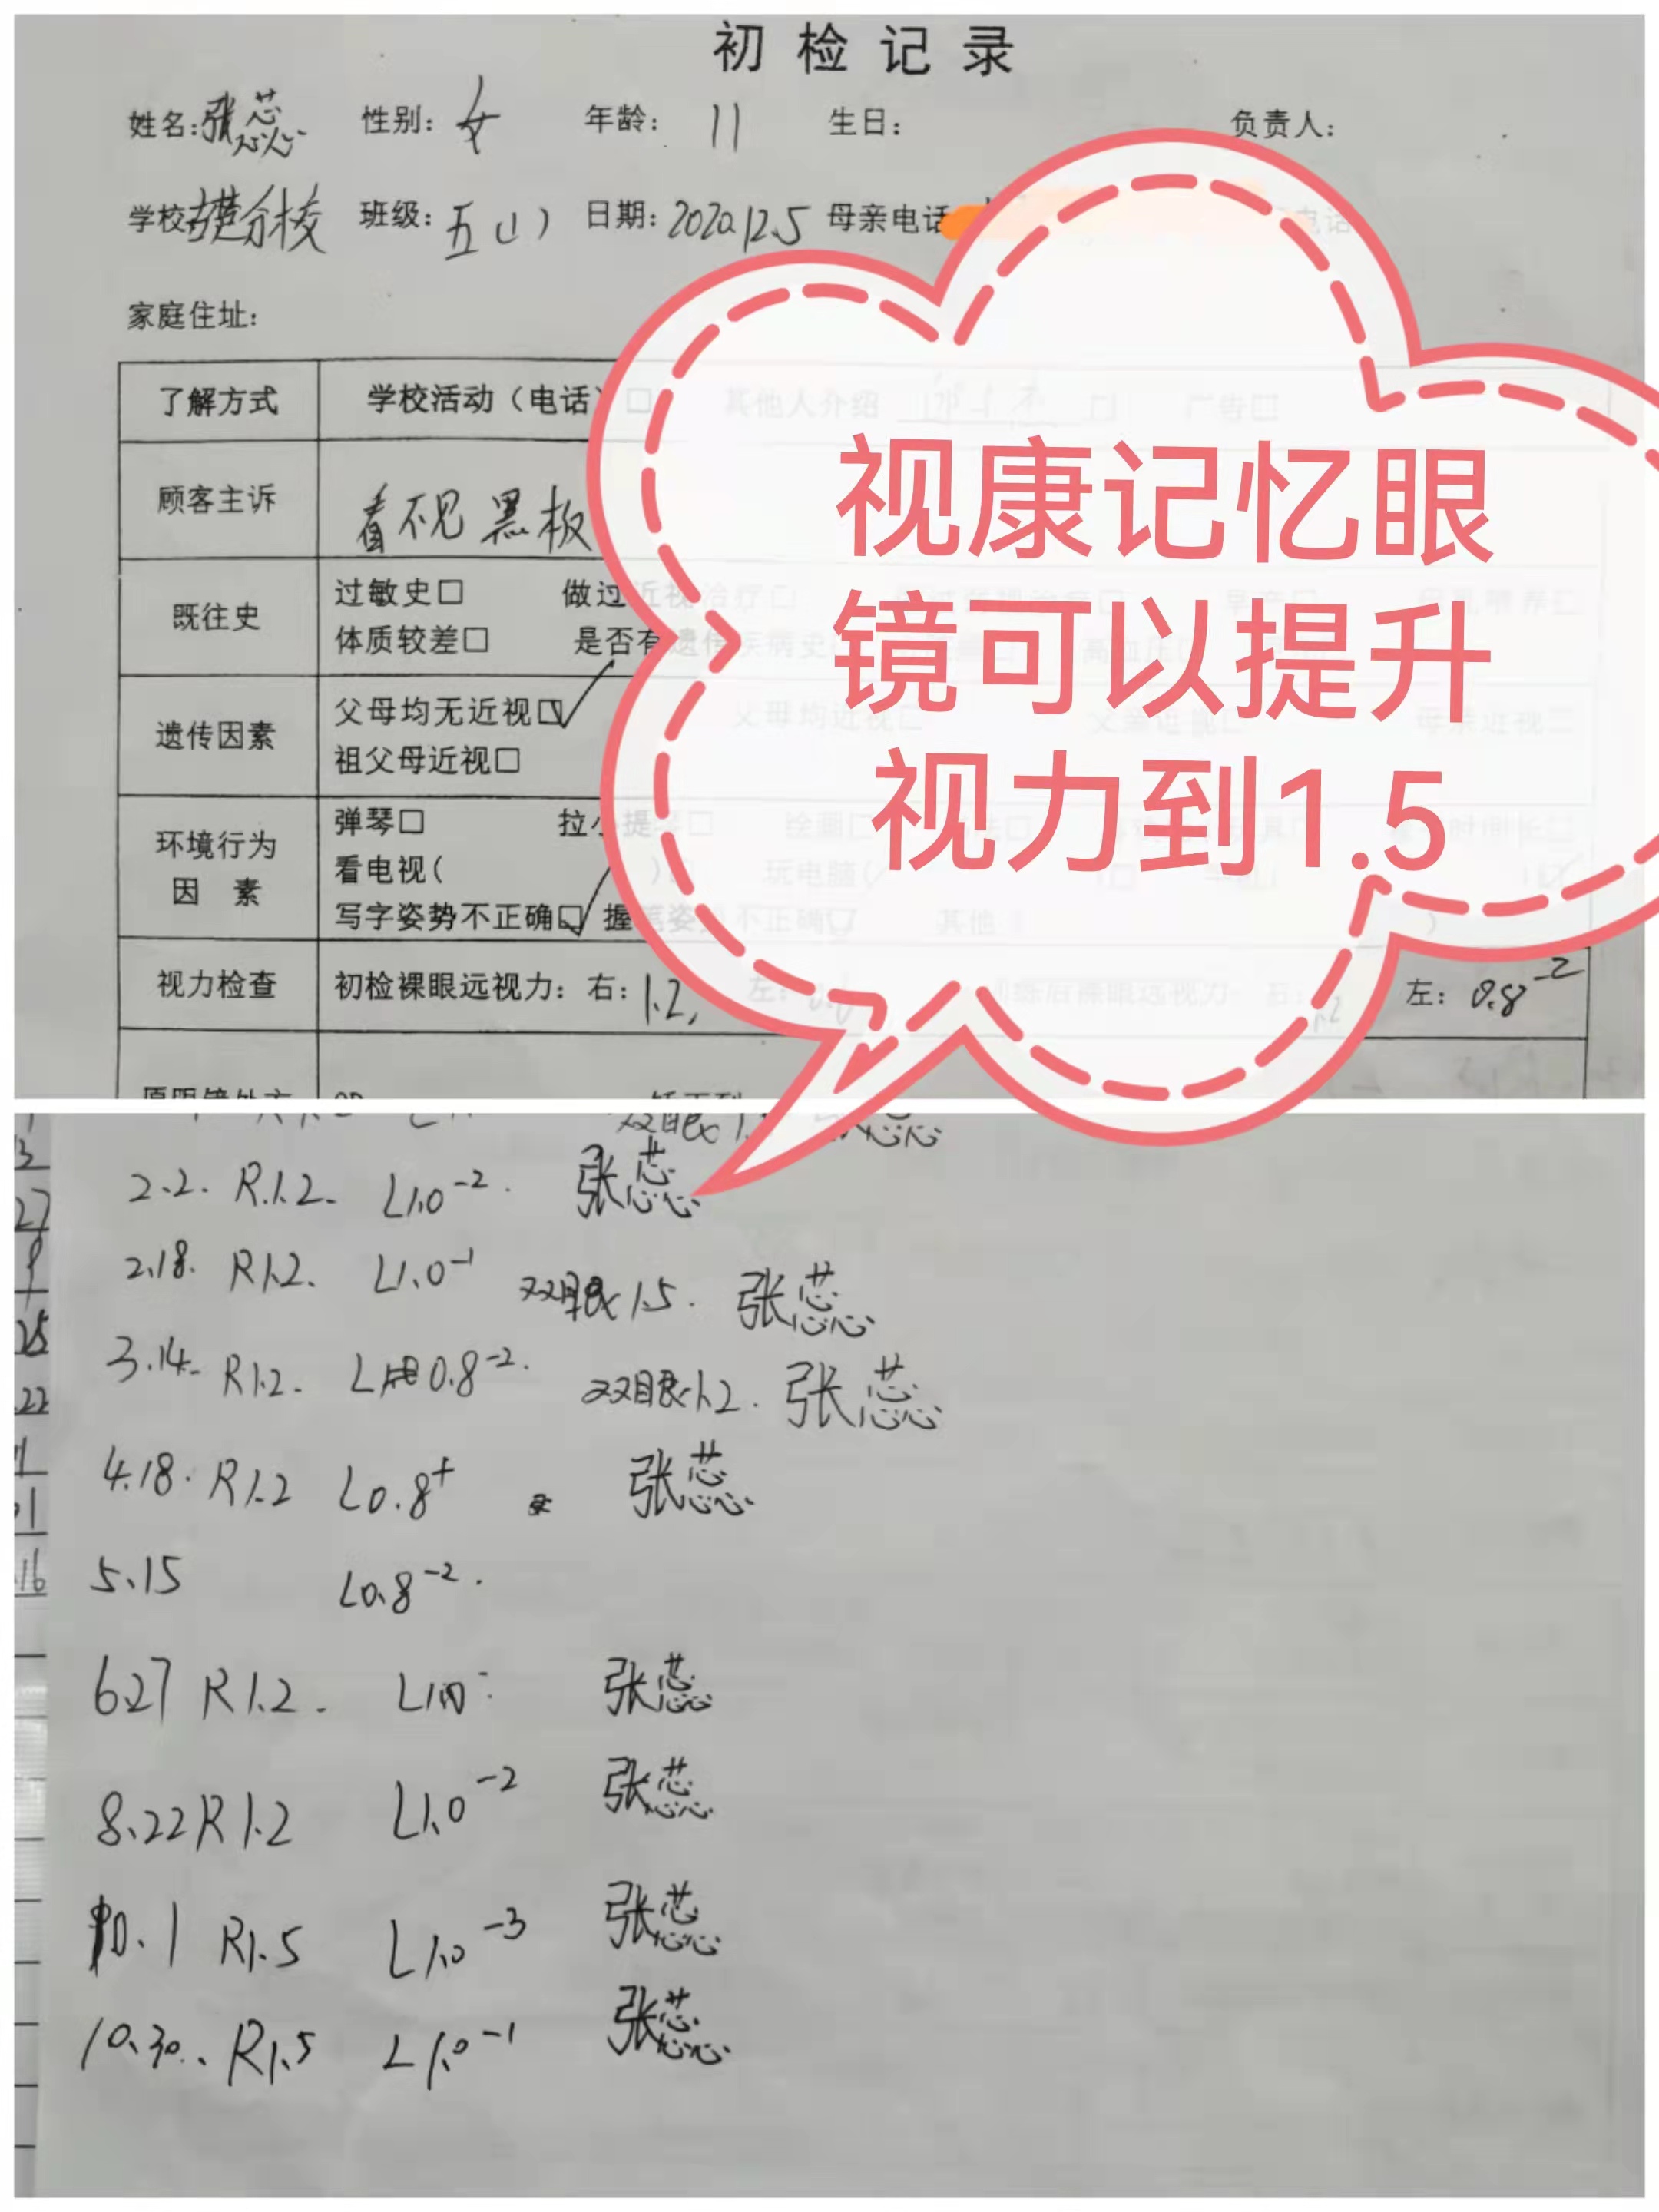 初检记录
姓名:张蕊 性别:女 年龄:11 生日: 负责人:
学校 分校 班级:五(1) 日期:2020.12.5 母亲电话 电话
家庭住址:
了解方式 学校活动(电话)□ 其他人介绍 □ 广告□
顾客主诉 看不见黑板
既往史 过敏史□ 做过近视治疗□
体质较差□ 是否有遗传疾病史 高血压□
遗传因素 父母均无近视☑ 父母均近视□ 父亲近视□ 母亲近视□
祖父母近视□
环境行为因素 弹琴□ 拉小提琴□ 绘画□
看电视( )□ 玩电脑( )□
写字姿势不正确☑ 握笔姿势不正确☑ 其他( )
视力检查 初检裸眼远视力:右:1.2, 左:0.6 训练后裸眼远视力 右:1.2 左:0.8⁻²
视康记忆眼
镜可以提升
视力到1.5
2.2. R.1.2. L1.0⁻². 张蕊
2.18. R1.2. L1.0⁻¹ 双眼1.5. 张蕊
3.14. R1.2. L 0.8⁻². 双眼1.2. 张蕊
4.18. R1.2 L0.8⁺ 张蕊
5.15 L0.8⁻².
6.27 R1.2. L1.0⁻ 张蕊
8.22 R1.2 L1.0⁻² 张蕊
10.1 R1.5 L1.0⁻³ 张蕊
10.30.. R1.5 L1.0⁻¹ 张蕊